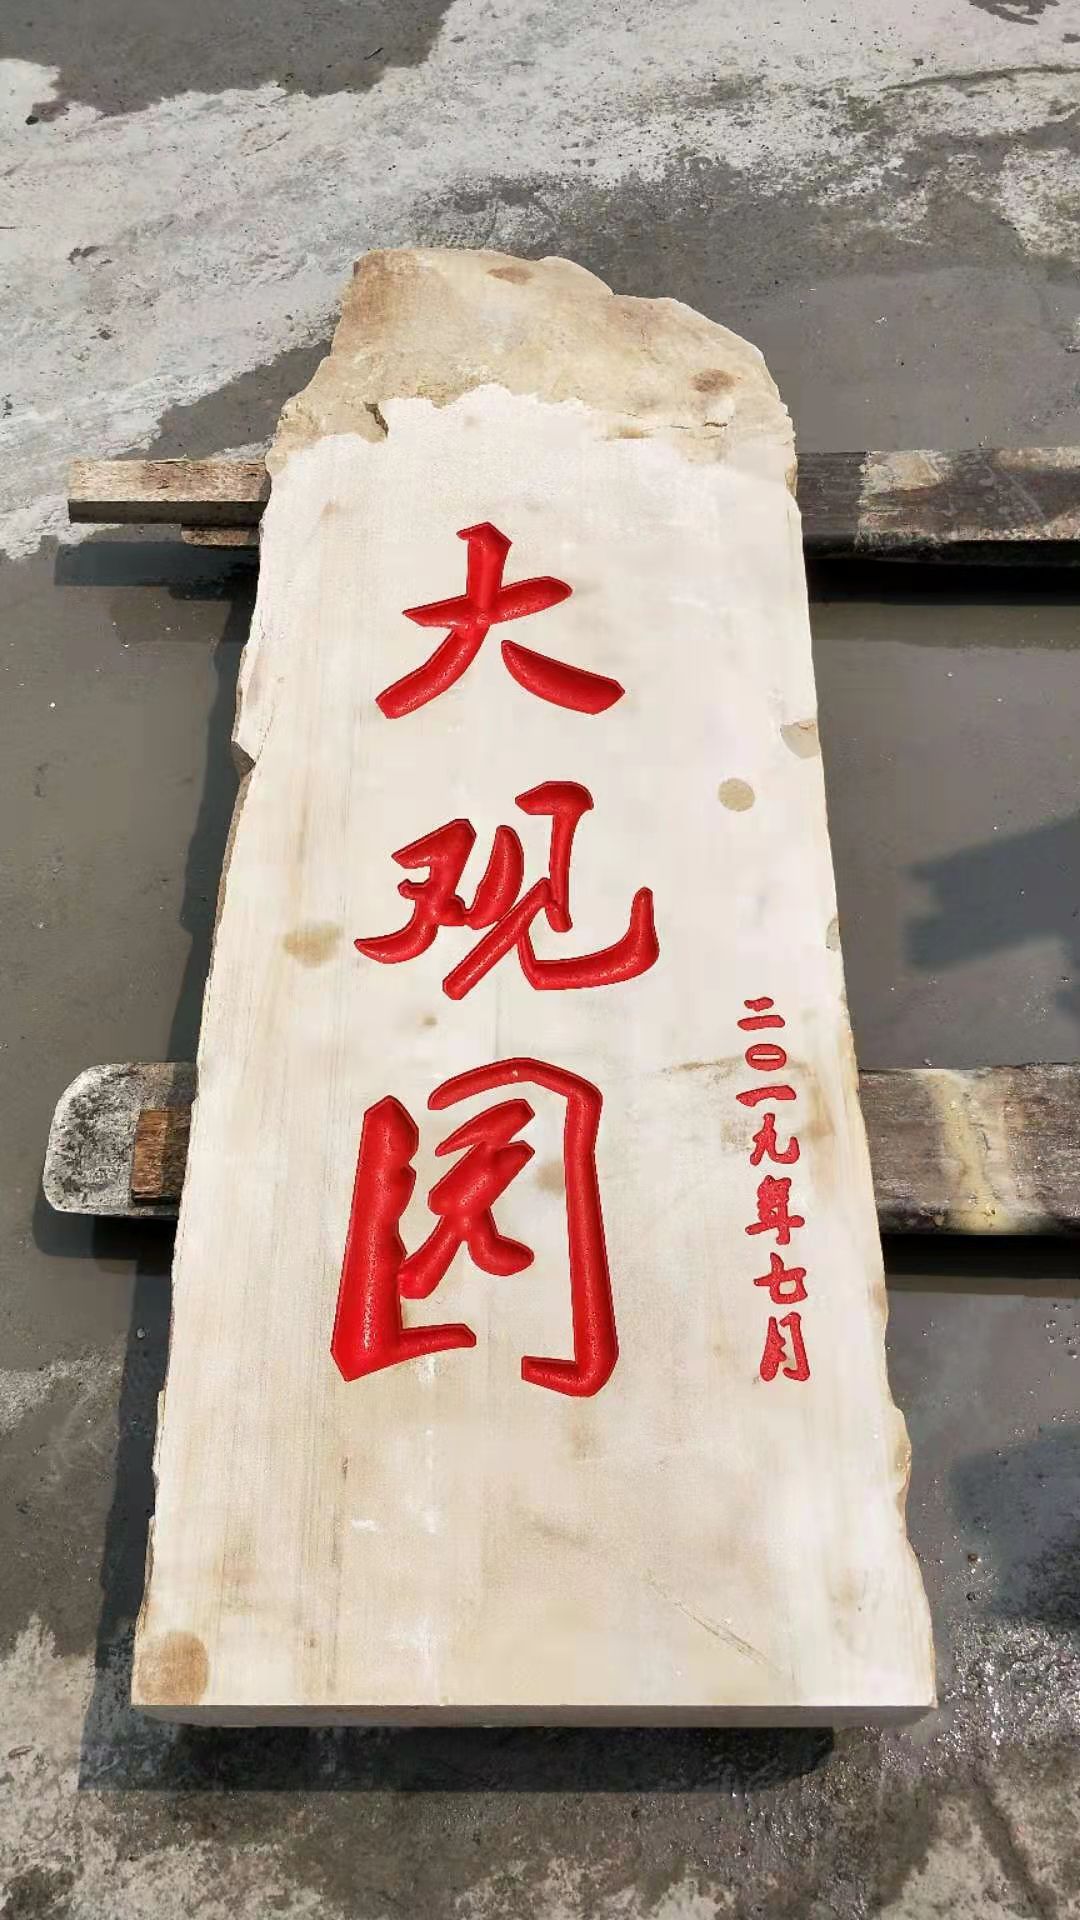 大观园
二〇一九年七月